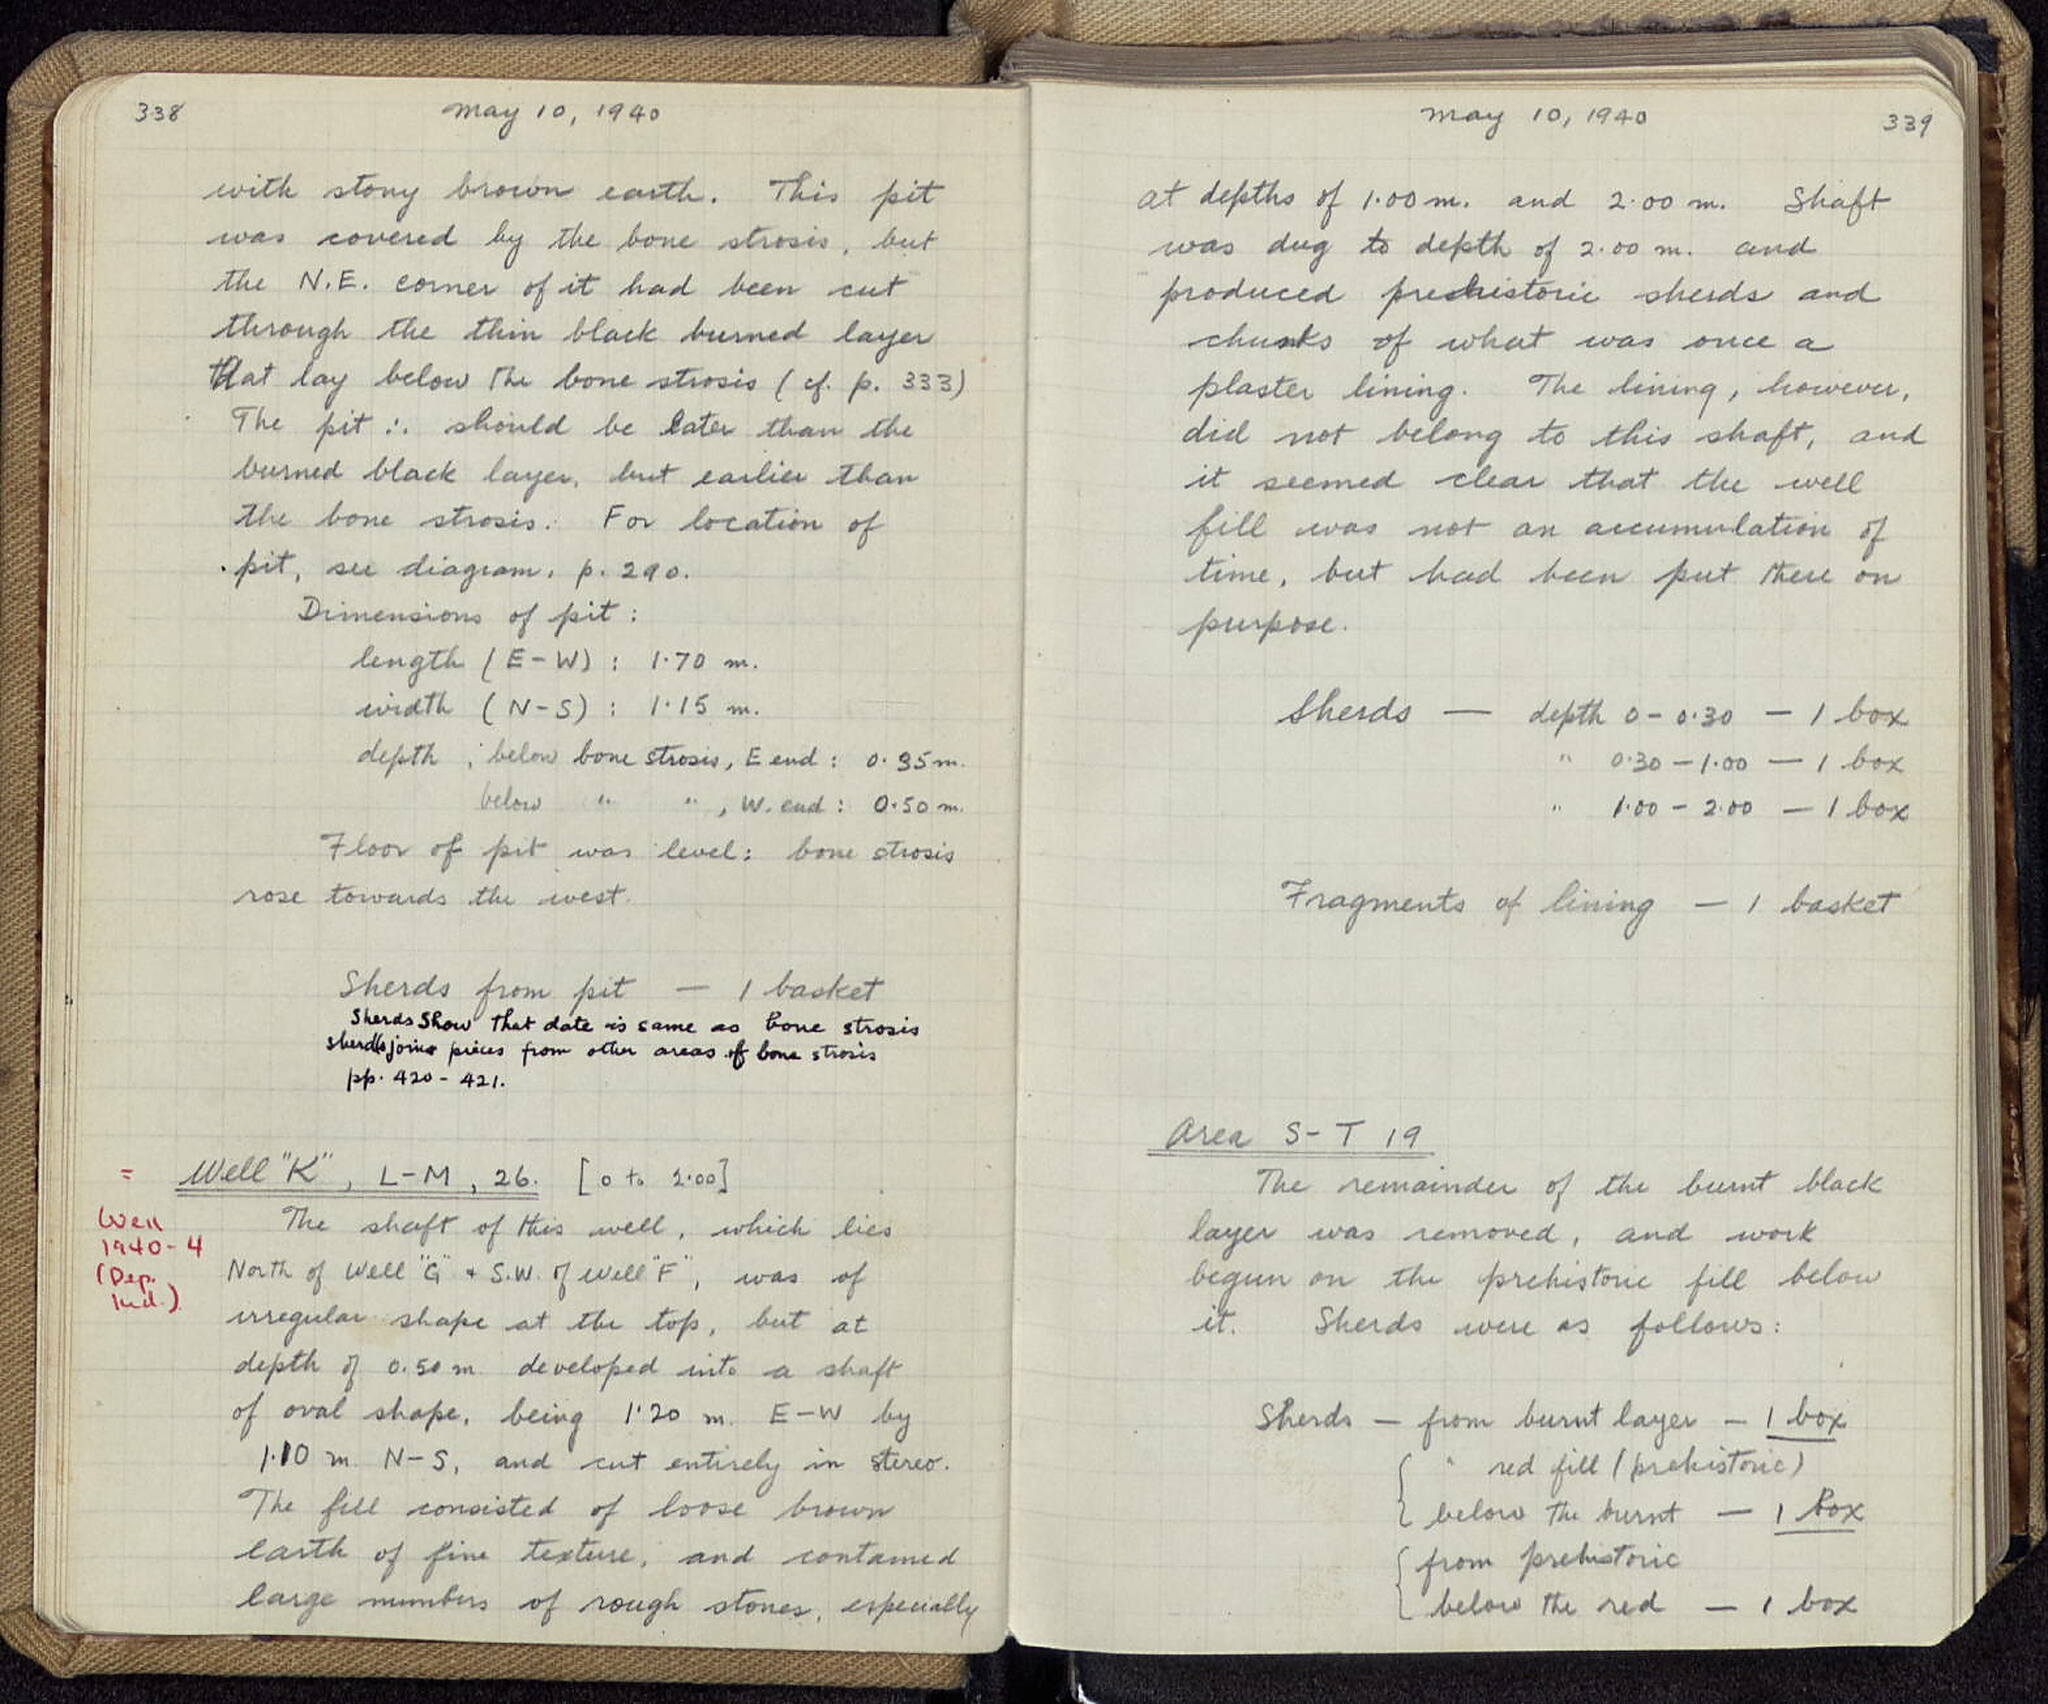 338
May 10, 1940
with stony brown earth. This pit
was covered by the bone strosis, but
the N.E. corner of it had been cut
through the thin black burned layer
that lay below the bone strosis (cf. p. 333)
The pit ∴ should be later than the
burned black layer, but earlier than
the bone strosis. For location of
pit, see diagram, p. 290.
Dimensions of pit:
length (E-W): 1.70 m.
width (N-S): 1.15 m.
depth; below bone strosis, E end: 0.35 m.
below " ", W. end: 0.50 m.
Floor of pit was level: bone strosis
rose towards the west.
Sherds from pit — 1 basket
Sherds show that date is same as bone strosis
sherds join pieces from other areas of bone strosis
pp. 420-421.
= Well "K", L-M, 26. [0 to 2.00]
Well
1940-4
(Dep.
Ind.)
The shaft of this well, which lies
North of Well "G" + S.W. of Well "F", was of
irregular shape at the top, but at
depth of 0.50 m developed into a shaft
of oval shape, being 1.20 m. E-W by
1.10 m N-S, and cut entirely in stereo.
The fill consisted of loose brown
earth of fine texture, and contained
large numbers of rough stones, especially
May 10, 1940
339
at depths of 1.00 m. and 2.00 m. Shaft
was dug to depth of 2.00 m. and
produced prehistoric sherds and
chunks of what was once a
plaster lining. The lining, however,
did not belong to this shaft, and
it seemed clear that the well
fill was not an accumulation of
time, but had been put there on
purpose.
Sherds — depth 0-0.30 — 1 box
" 0.30-1.00 — 1 box
" 1.00-2.00 — 1 box
Fragments of lining — 1 basket
Area S-T 19
The remainder of the burnt black
layer was removed, and work
begun on the prehistoric fill below
it. Sherds were as follows:
Sherds — from burnt layer — 1 box
" red fill (prehistoric)
below the burnt — 1 box
from prehistoric
below the red — 1 box